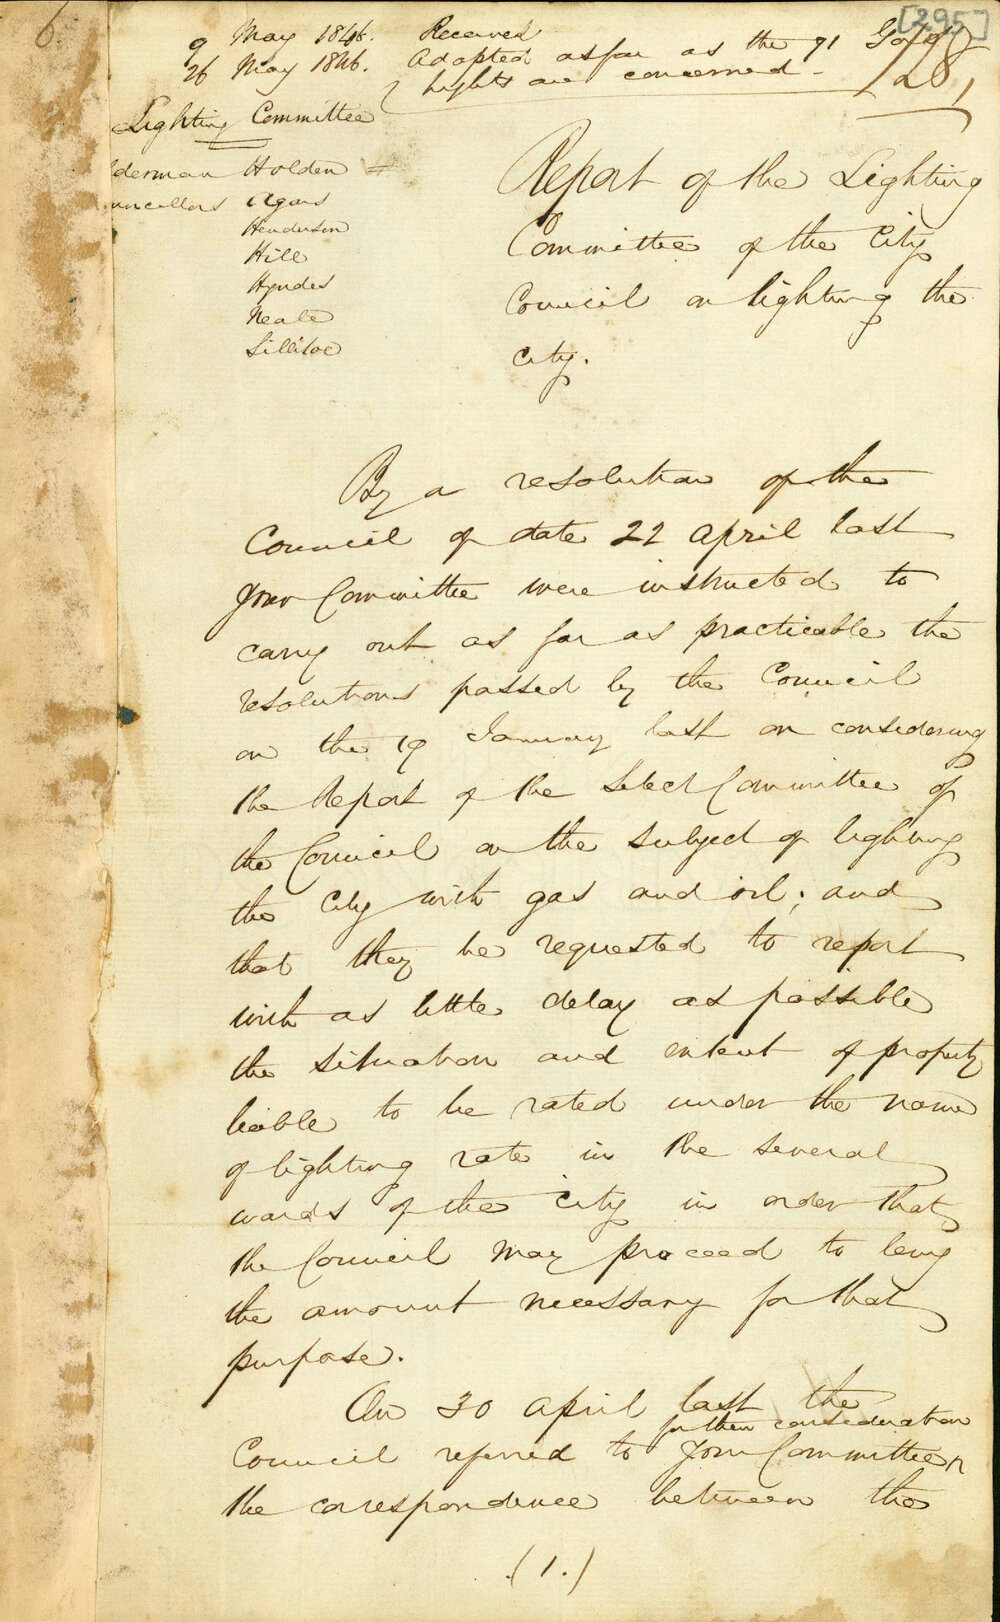 6.
[295]
9 May 1846. Received
26 May 1846. Adopted as far as the 91 Gas
lights are concerned -
128,
Lighting Committee
lderman Holden
uncillors Agars
Henderson
Hill
Hyndes
Neale
Sillitoe
Report of the Lighting
Committee of the City
Council on lighting the
city.
By a resolution of the
Council of date 22 April last
your Committee were instructed to
carry out as far as practicable the
resolutions passed by the Council
on the 19 January last on considering
the Report of the Select Committee of
the Council on the subject of lighting
the City with gas and oil; and
that they be requested to report
with as little delay as possible
the situation and extent of property
liable to be rated under the name
of lighting rate in the several
wards of the city in order that
the Council may proceed to levy
the amount necessary for that
purpose.
On 30 April last the
for their consideration
Council referred to your Committee
the correspondence between the
(1.)